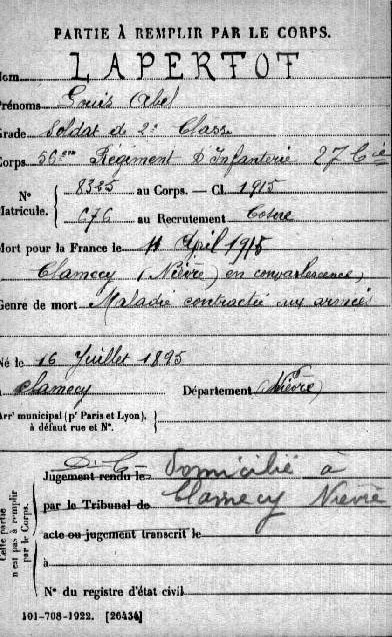 PARTIE À REMPLIR PAR LE CORPS.
Nom LAPERTOT
Prénoms Louis Abel
Grade Soldat de 2e Classe
Corps 56ème Régiment d'Infanterie 27 Cie
N° Matricule. { 8325 au Corps. — Cl. 1915
676 au Recrutement Cosne
Mort pour la France le 11 April 1915
Clamecy (Nièvre) en convalescence,
Genre de mort Maladie contractée aux armées
Né le 16 Juillet 1895
à Clamecy Département (Nièvre)
Arr' municipal (p' Paris et Lyon),
à défaut rue et N°.
Cette partie n'est pas à remplir par le Corps.
Jugement rendu le Domicilié à
par le Tribunal de Clamecy Nièvre
acte ou jugement transcrit le
à
N° du registre d'état civil
101-708-1922. [26434]